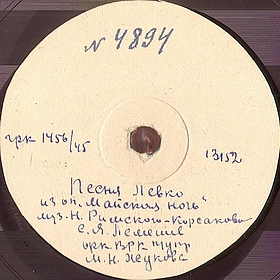 N 4894
грк 1456/45
13152
Песня Левко
из оп. "Майская ночь"
муз. Н. Римского-Корсакова
С. Я. Лемешев
орк. ВРК п/упр
М. Н. Жукова